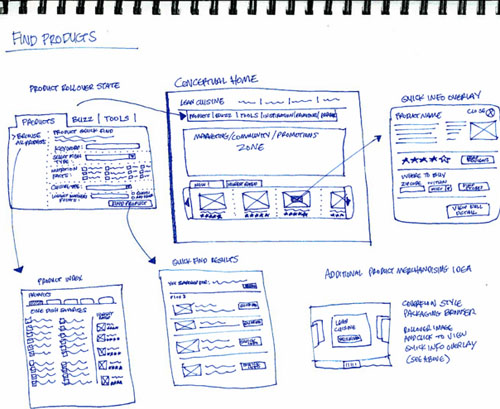 FIND PRODUCTS
PRODUCT ROLLOVER STATE
PRODUCTS | BUZZ | TOOLS |
> BROWSE
ALL PRODUCTS
PRODUCT QUICK FIND
KEYWORD:
NUTRITION
FACTS:
FIND PRODUCT
CONCEPTUAL HOME
LEAN CUISINE
PRODUCTS | BUZZ | TOOLS |
MARKETING/COMMUNITY/PROMOTIONS
ZONE
QUICK INFO OVERLAY
PRODUCT NAME
CLOSE X
WHERE TO BUY
VIEW FULL
DETAIL
PRODUCT INDEX
PRODUCTS
ONE DISH FAVORITES
QUICK FIND RESULTS
YOU SEARCHED FOR:
ADDITIONAL PRODUCT MERCHANDISING IDEA
LEAN
CUISINE
COVERFLOW STYLE
PACKAGING BROWSER
ROLLOVER IMAGE
AND CLICK TO VIEW
QUICK INFO OVERLAY
(SEE ABOVE)